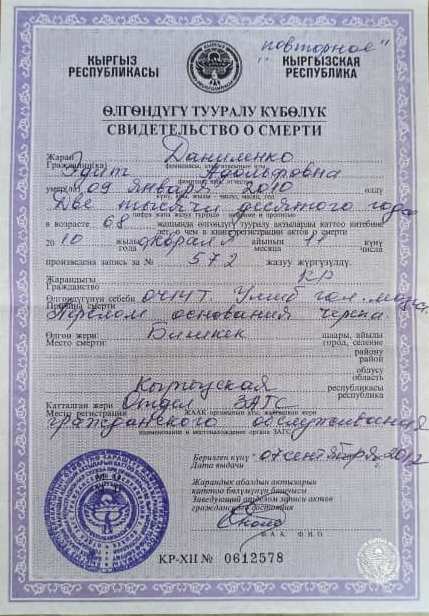 "повторное"
КЫРГЫЗ РЕСПУБЛИКАСЫ
КЫРГЫЗСКАЯ РЕСПУБЛИКА
ӨЛГӨНДҮГҮ ТУУРАЛУ КҮБӨЛҮК
СВИДЕТЕЛЬСТВО О СМЕРТИ
Жаран Даниленко
Гражданин(ка)
Эдит Адольфовна
умер(ла) 09 января 2010 өлдү
Две тысячи десятого года
цифра жана жазуу түрүндө цифрами и прописью
в возрасте 68 жашында өлгөндүгү тууралуу актыларды каттоо китебине
лет, о чем в книге регистрации актов о смерти
20 10 жылы января айынын 11 күнү
года месяца числа
произведена запись за № 572 жазуу жүргүзүлдү.
Жарандыгы КР
Гражданство
Өлгөндүгүнүн себеби ОЧМТ. Ушиб гол. мозга.
Причина смерти
Перелом основания черепа.
Өлгөн жери: Бишкек шаары, айылы
Место смерти: город, селение
району
район
облусу
область
Кыргызская республикасы
республика
Катталган жери Отдел ЗАГС
Место регистрации ЖААК органынын аты, жайгашкан жери
гражданского обслуживания
наименование и местонахождение органа ЗАГС
Берилген күнү 07 сентября 2012
Дата выдачи
Жарандык абалдын актыларын
каттоо бөлүмүнүн башчысы
Заведующий отделом записи актов
гражданского состояния
Ф.А.А. Ф.И.О.
КР-XII № 0612578